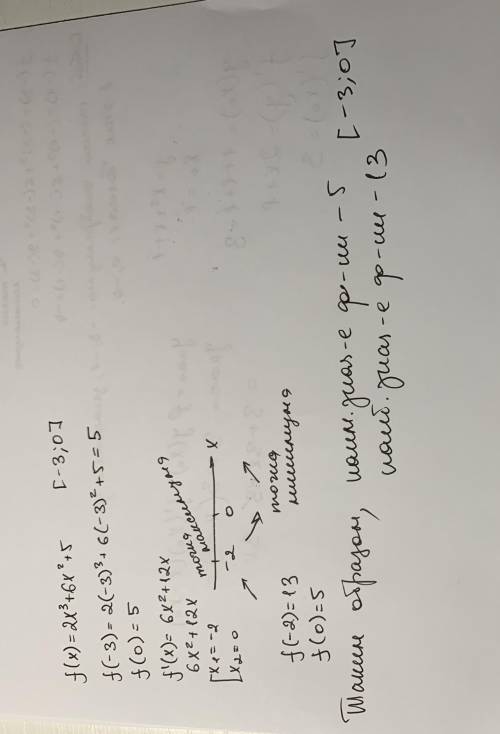 f(x) = 2x³+6x²+5 [-3;0]
f(-3) = 2(-3)³+6(-3)²+5=5
f(0) = 5
f'(x) = 6x²+12x
6x²+12x
x₁=-2
x₂=0
точка максимума
-2 0 x
точка минимума
f(-2)=13
f(0)=5
Таким образом, наим. знач-е ф-ии - 5 [-3;0]
наиб. знач-е ф-ии - 13